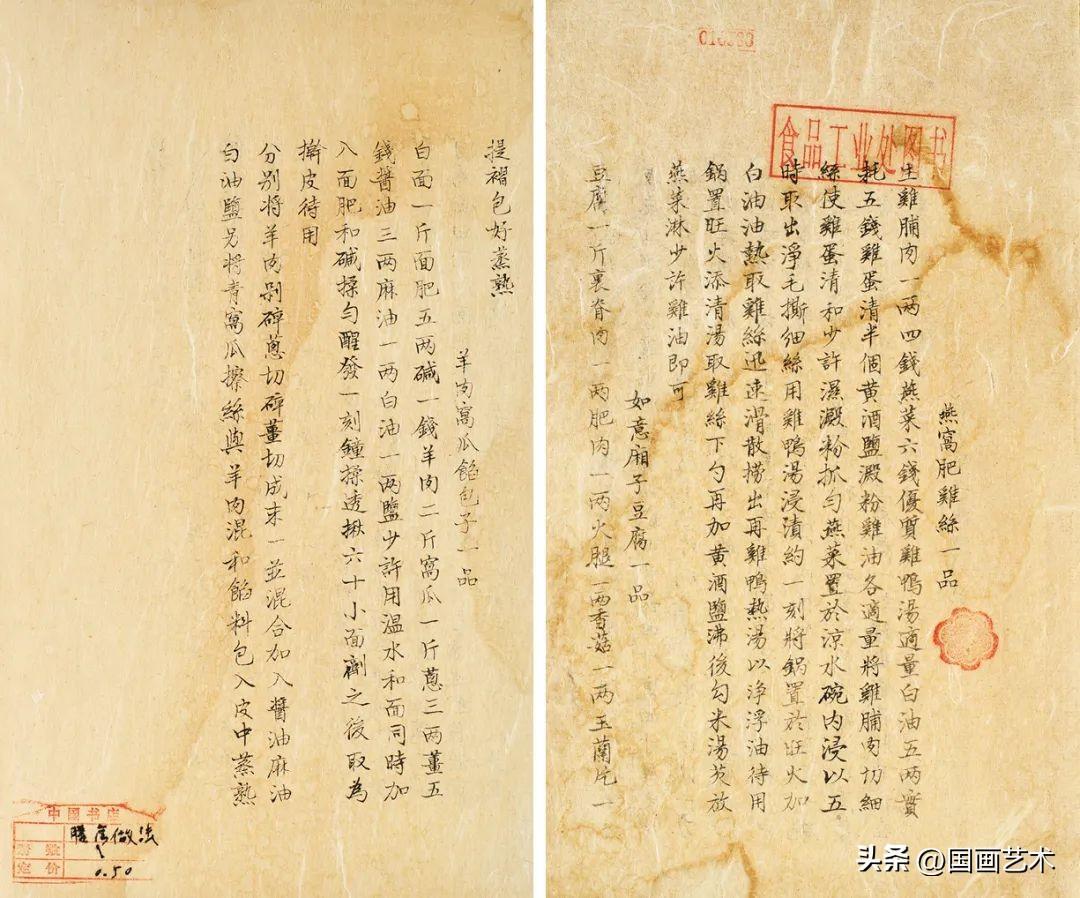 食品工业处图书
燕窩肥雞絲一品
生雞脯肉一两四錢燕菜六錢優質雞鴨湯適量白油五两實
耗五錢雞蛋清半個黄酒鹽澱粉雞油各適量將雞脯肉切細
絲使雞蛋清和少許濕澱粉抓匀燕菜置於凉水碗内浸以五
時取出淨毛撕细絲用雞鴨湯浸漬約一刻將鍋置於旺火加
白油油熱取雞絲迅速滑散撈出再雞鴨熱湯以浄浮油待用
鍋置旺火添清湯取雞絲下勺再加黄酒鹽沸後勾米湯芡放
燕菜淋少許雞油即可
如意厢子豆腐一品
豆腐一斤裏脊肉一两肥肉一两火腿一两香菇一两玉蘭片一
提褶包好蒸熟
羊肉窩瓜餡包子一品
白面一斤面肥五两碱一錢羊肉二斤窩瓜一斤蔥三两薑五
錢醬油三两麻油一两白油一两鹽少許用溫水和面同時加
入面肥和碱揉匀醒發一刻鐘揉透揪六十小面劑之後取為
擀皮待用
分别將羊肉剁碎蔥切碎薑切成末一並混合加入醬油麻油
白油鹽另將青窩瓜擦絲與羊肉混和餡料包入皮中蒸熟
中国书店
膳房做法
定价 0.50
头条 @国画艺术